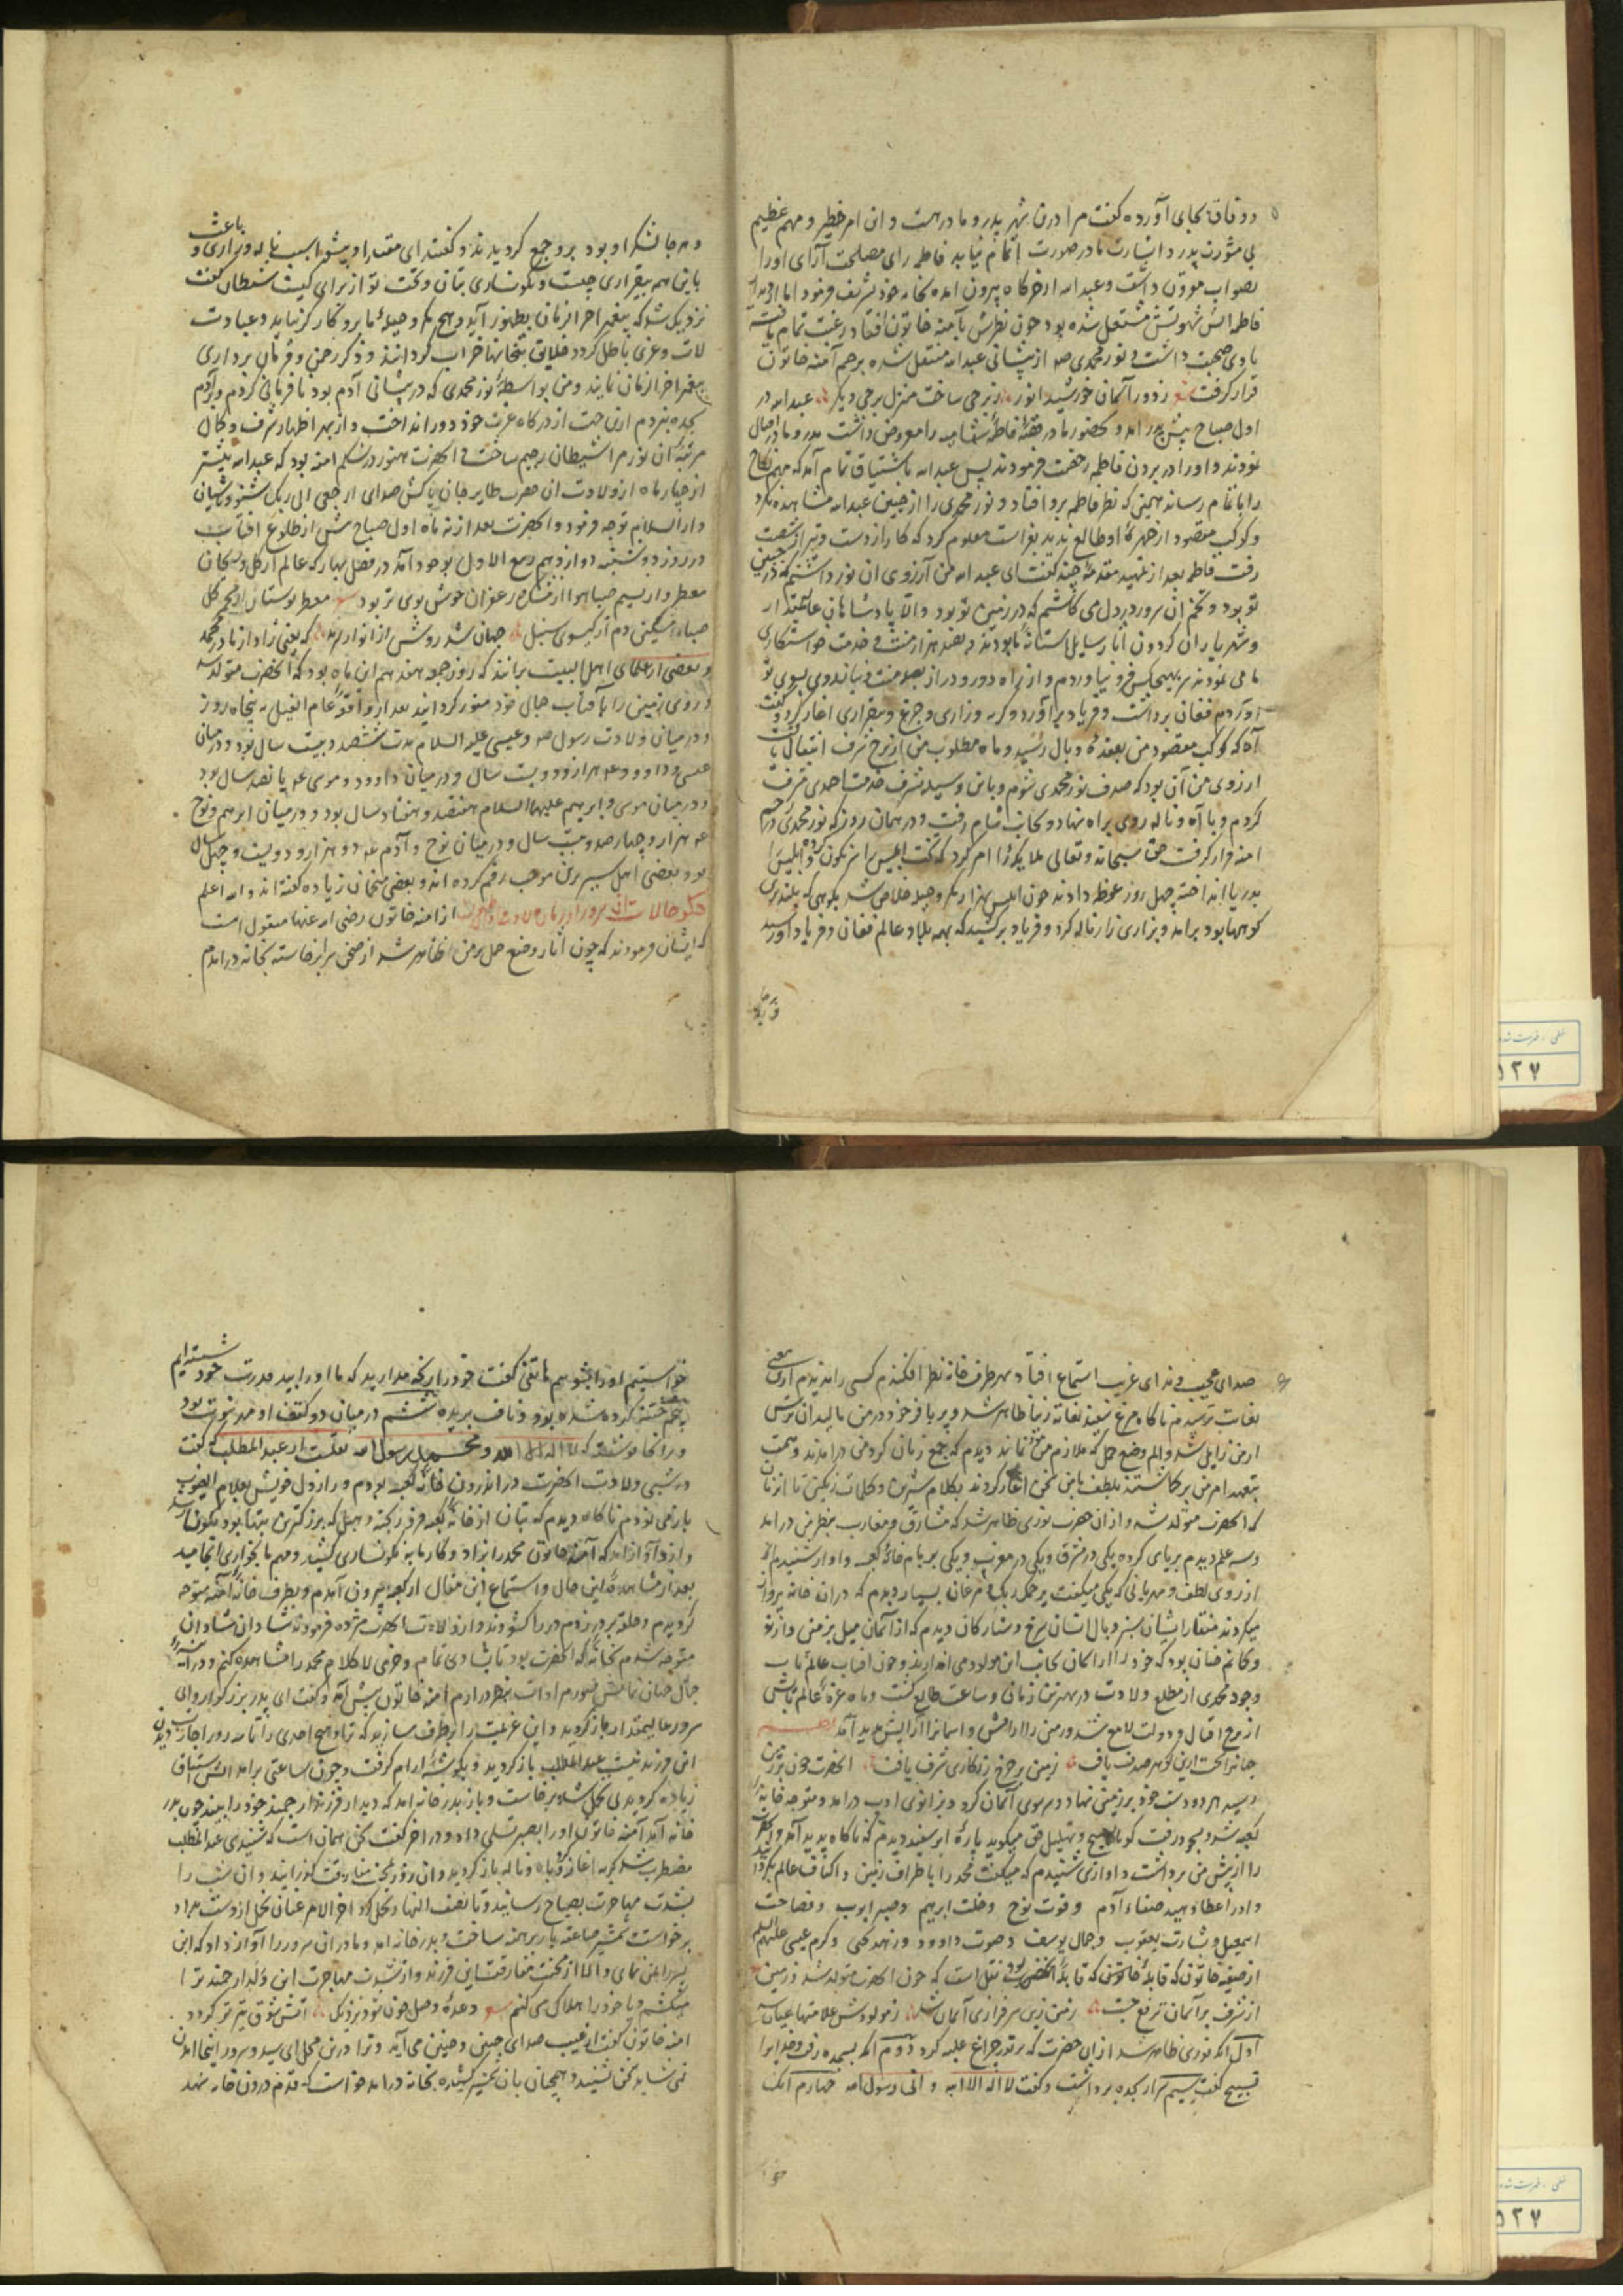 و وفاق بجای آورده گفت مرا درین شهر پدر و مادر هست و این امر خطیر و مهم عظیم
بی مشورت پدر و اشارت مادر صورت اتمام نیابد فاطمه رای مصلحت آرای او را
بصواب مقرون داشت و عبدالله از خرگاه بیرون آمده بخانه خود تشریف فرمود اما از
فاطمه آتش شهوتش مشتعل شده بود چون نظرش بآمنه خاتون افتاد رغبت تمام یافته
با وی صحبت داشت و نور محمدی از پیشانی عبدالله منتقل شده برحم آمنه خاتون
قرار گرفت ز دور آسمان خورشید انور ز برجی ساخت منزل برجی دیگر عبدالله در
اول صباح پیش پدر آمد و بحضور مادر قصه فاطمه شامیه را معروض داشت پدر و مادر
نمودند و او را در بردن فاطمه رخصت فرمودند پس عبدالله باشتیاق تمام آمد که مهم نکاح
را باتمام رساند همین که نظر فاطمه برو افتاد و نور محمدی را از جبین عبدالله مشاهده نکرد
و کوکب مقصود از چهره او طالع ندید بفراست معلوم کرد که کار از دست و تیر از شصت
رفت فاطمه بعد از تمهید مقدمه چند گفت ای عبدالله من آرزوی آن نور داشتم که در جبین
تو بود و تخم آن سرور در دل می کاشتم که در زمین تو بود والا پادشاهان عالیمقدار
و شهریاران گردون
ما می نمودند سر بهیچکس فرو نیاوردم و از راه دور و دراز بصد منت و نیاز روی بسوی تو
آوردم فغان برداشت و فریاد برآورد و گریه و زاری و جزع و بیقراری آغاز کرد و گفت
آه که کوکب مقصود من بعقده وبال رسید و ماه مطلوب من از برج شرف انتقال یافت
آرزوی من آن بود که صدف نور محمدی شوم و باین وسیله بشرف خدمت احمدی
کردم و با آه و ناله روی براه نهاد و بجانب شام رفت و در همان روز که نور محمدی در رحم
آمنه قرار گرفت حق سبحانه و تعالی ملایکه را امر کرد که تخت ابلیس را نگون کرده و ابلیس را
بدریا انداخته چهل روز غوطه دادند چون ابلیس بهزار مکر و حیله خلاص شد بکوهی که بلندترین
کوهها بود برآمد و بزاری زار ناله کرد و فریاد برکشید که همه بلاد عالم فغان و فریاد او رسید
و هر جا لشکر او بود برو جمع گردیدند و گفتند ای مقتدا و پیشوا سبب ناله و زاری و باعث
باین همه بیقراری چیست و نگونساری بتان و تخت تو از برای کیست شیطان گفت
نزدیک شد که پیغمبر آخرالزمان بظهور آید و هیچ مکر و حیله ما برو کارگر نیاید و عبادت
لات و عزی باطل گردد خلایق بتخانها خراب گردانند و ذکر رحمن و فرمان برداری
پیغمبر آخرالزمان نمایند و من بواسطه نور محمدی که در پیشانی آدم بود نافرمانی کردم و بآدم
سجده نبردم ازین جهت از درگاه عزت خود دور انداخت و از بهر اظهار شرف و کمال
مرتبه آن نور مرا شیطان رجیم ساخت و آنحضرت هنوز در شکم آمنه بود که عبدالله پیشتر
از چهار ماه از ولادت آن حضرت طایر جان پاکش صدای ارجعی الی ربک شنود و بآشیان
دارالسلام توجه فرمود و آنحضرت بعد از نه ماه اول صباح پیش از طلوع آفتاب
در روز دوشنبه دوازدهم ربیع الاول بوجود آمد در فصل بهار که عالم از گل و ریحان
معطر و از نسیم صبا هوا از زعفران خوش بوی تر بود معطر بوستان از کل
صبا مشکین دم از گیسوی سنبل جهان شد روشن از انوار سرمد که یعنی زاد از مادر محمد
و بعضی از علمای اهل البیت برآنند که روز جمعه هفدهم آن ماه بود که آنحضرت متولد شد
و روی زمین را بآفتاب جمال خود منور گردانید بعد از واقعه عام الفیل به پنجاه روز
و در میان ولادت رسول و عیسی علیه السلام مدت ششصد و بیست سال بود و در میان
عیسی و داوود هزار و دویست سال و در میان داوود و موسی پانصد سال بود
و در میان موسی و ابرهیم علیهما السلام هفتصد و هفتاد سال بود و در میان ابرهیم و نوح
هزار و چهارصد و بیست سال و در میان نوح و آدم دو هزار و دویست و چهل سال
بود بعضی اهل سیر برین موجب رقم کرده اند و بعضی منجمان زیاده گفته اند والله اعلم
ذکر حالات آن سرور از آمنه خاتون رضی الله عنها منقول است
که ایشان فرمودند که چون آثار وضع حمل بر من ظاهر شد از صحن سرا برخاسته بخانه درآمدم
صدای عجیب و ندای غریب استماع افتاد بهر طرف خانه نظر افکندم کسی را ندیدم
بغایت ترسیدم ناگاه مرغ سفید بغایت زیبا ظاهر شد و پر بال خود در من مالید آن ترس
از من زایل شد و الم وضع حمل که ملازم من بود نماند دیدم که جمع زنان گرد من درآمدند و همت
بتعهد امر من برگماشتند بلطف با من سخن آغاز کردند بکلام شیرین و کلمات رنگین تا آن زمان
که آنحضرت متولد شد و از آن حضرت نوری ظاهر شد که مشارق و مغارب بنظر من درآمد
و سه علم دیدم برپای کرده یکی در مشرق و یکی در مغرب و یکی بر بام خانه کعبه و آواز شنیدم
از روی لطف و مهربانی که یکی میگفت یرحمک ربک و مرغان بسیار دیدم که در آن خانه پرواز
میکردند منقار ایشان سبز و بال ایشان سرخ و ستارگان دیدم که از آسمان میل بزمین دارند
و گمانم چنان بود که خود را از آسمان بجانب این مولود می اندازند و چون آفتاب عالمتاب
وجود محمدی از مطلع ولادت در بهترین زمانی و ساعت طالع گشت و ماه غره عالم
از برج اقبال و دولت لامع شد و زمین را آرامش و آسمانرا آرایش پدید آمد
یافت زمین بر چرخ زنگاری شرف یافت آنحضرت چون بر زمین
رسید هر دو دست خود بر زمین نهاد و سر سوی آسمان کرد و بزانوی ادب درآمد و متوجه خانه
کعبه شد و بسجود رفت گویا تسبیح و تهلیل حق میگوید پاره ابر سفید دیدم که ناگاه پدید آمد و
را از پیش من برداشت و آوازی شنیدم که میگفت محمد را باطراف زمین و اکناف عالم بگردانید
و او را عطا دهید صفاء آدم و قوت نوح و خلت ابرهیم و صبر ایوب و فصاحت
اسمعیل و بشارت یعقوب و جمال یوسف و صوت داوود و زهد یحیی و کرم عیسی علیهم السلام
از صفیه خاتون که قابله آنحضرت بود نقل است که چون آنحضرت متولد شد و زمین
از شرف بر آسمان ترفع جست زمین زین سرفرازی آسمان شد ز مولودش علامتها عیان شد
اول آنکه نوری ظاهر شد از آن حضرت که بر نور چراغ غلبه کرد دوم آنکه بسجده رفت و خدایرا
تسبیح گفت سیم سر از سجده برداشت و گفت لا اله الا الله و انی رسول الله چهارم آنکه
خواستم او را بشویم هاتفی گفت خود را رنجه مدارید که ما او را بید قدرت خود شسته ایم
پنجم ختنه کرده شده بود و ناف بریده ششم در میان دو کتف او مهر نبوت بود
و در آنجا نوشته که لا اله الا الله و محمد رسول الله نقلست از عبدالمطلب که گفت
در شب ولادت آنحضرت در اندرون خانه کعبه بودم و راز دل خویش بعلام الغیوب
بازمی نمودم ناگاه دیدم که بتان از خانه کعبه فرو ریختند و هبل که بزرگترین بتها بود نگونسار شد
و ازو آواز آمد که آمنه خاتون محمد را بزاد و کار ما به نگونساری کشید و مهم ما بخواری انجامید
بعد از مشاهده این حال و استماع این مقال از کعبه بیرون آمدم و بطرف خانه آمنه متوجه
گردیدم و حلقه بر در زدم در را گشودند و از ولادت آنحضرت مژده فرمودند شادان شادان
متوجه شدم بخانه که آنحضرت بود تا بشادی تمام و خرمی لا کلام محمد را مشاهده کنم و در آینه
جمال جهان نمایش صورت مراد را بنظر درآرم آمنه خاتون پیش آمد و گفت ای پدر بزرگوار وای
سرور عالیمقدار بازگردید و این عزیمت را برطرف سازید که تا سه روز اجازت دیدن
این فرزند نیست عبدالمطلب بازگردید و بگوشه آرام گرفت و چون ساعتی برآمد آتش اشتیاق
زیاده گردید بی تحمل شده برخاست و باز بدر خانه آمد که دیدار فرزند ارجمند خود را ببیند چون بدر
خانه آمد آمنه خاتون او را بصبر تسلی داد و در آخر گفت سخن همان است که شنیدی عبدالمطلب
مضطرب شد گریه آغاز کرد با آه و ناله بازگردید و آن روز بمحنت مفارقت گذرانید و آن شب را
بشدت مهاجرت بصباح رسانید و تا نصف النهار تحمل کرد آخر الامر عنان تحمل از دست بداد
برخواست شمشیر برهنه ساخت و بدر خانه آمد و مادر آن سرور را آواز داد که این
پسر را بمن نمای والا از محنت مفارقت این فرزند و از شدت مهاجرت این دلبند ارجمند ترا
میکشم و یا خود را هلاک می کنم وعده وصل چون شود نزدیک آتش شوق تیزتر گردد
آمنه خاتون گفت از غیب صدای چنین و چنین می آید و ترا درین محل ای سید و سرور اینجا آمدن
نمی شاید سخن نشنید و همچنان با شمشیر کشیده بخانه درآمد خواست که قدم درون خانه نهد
۵۲۷
۵۲۷